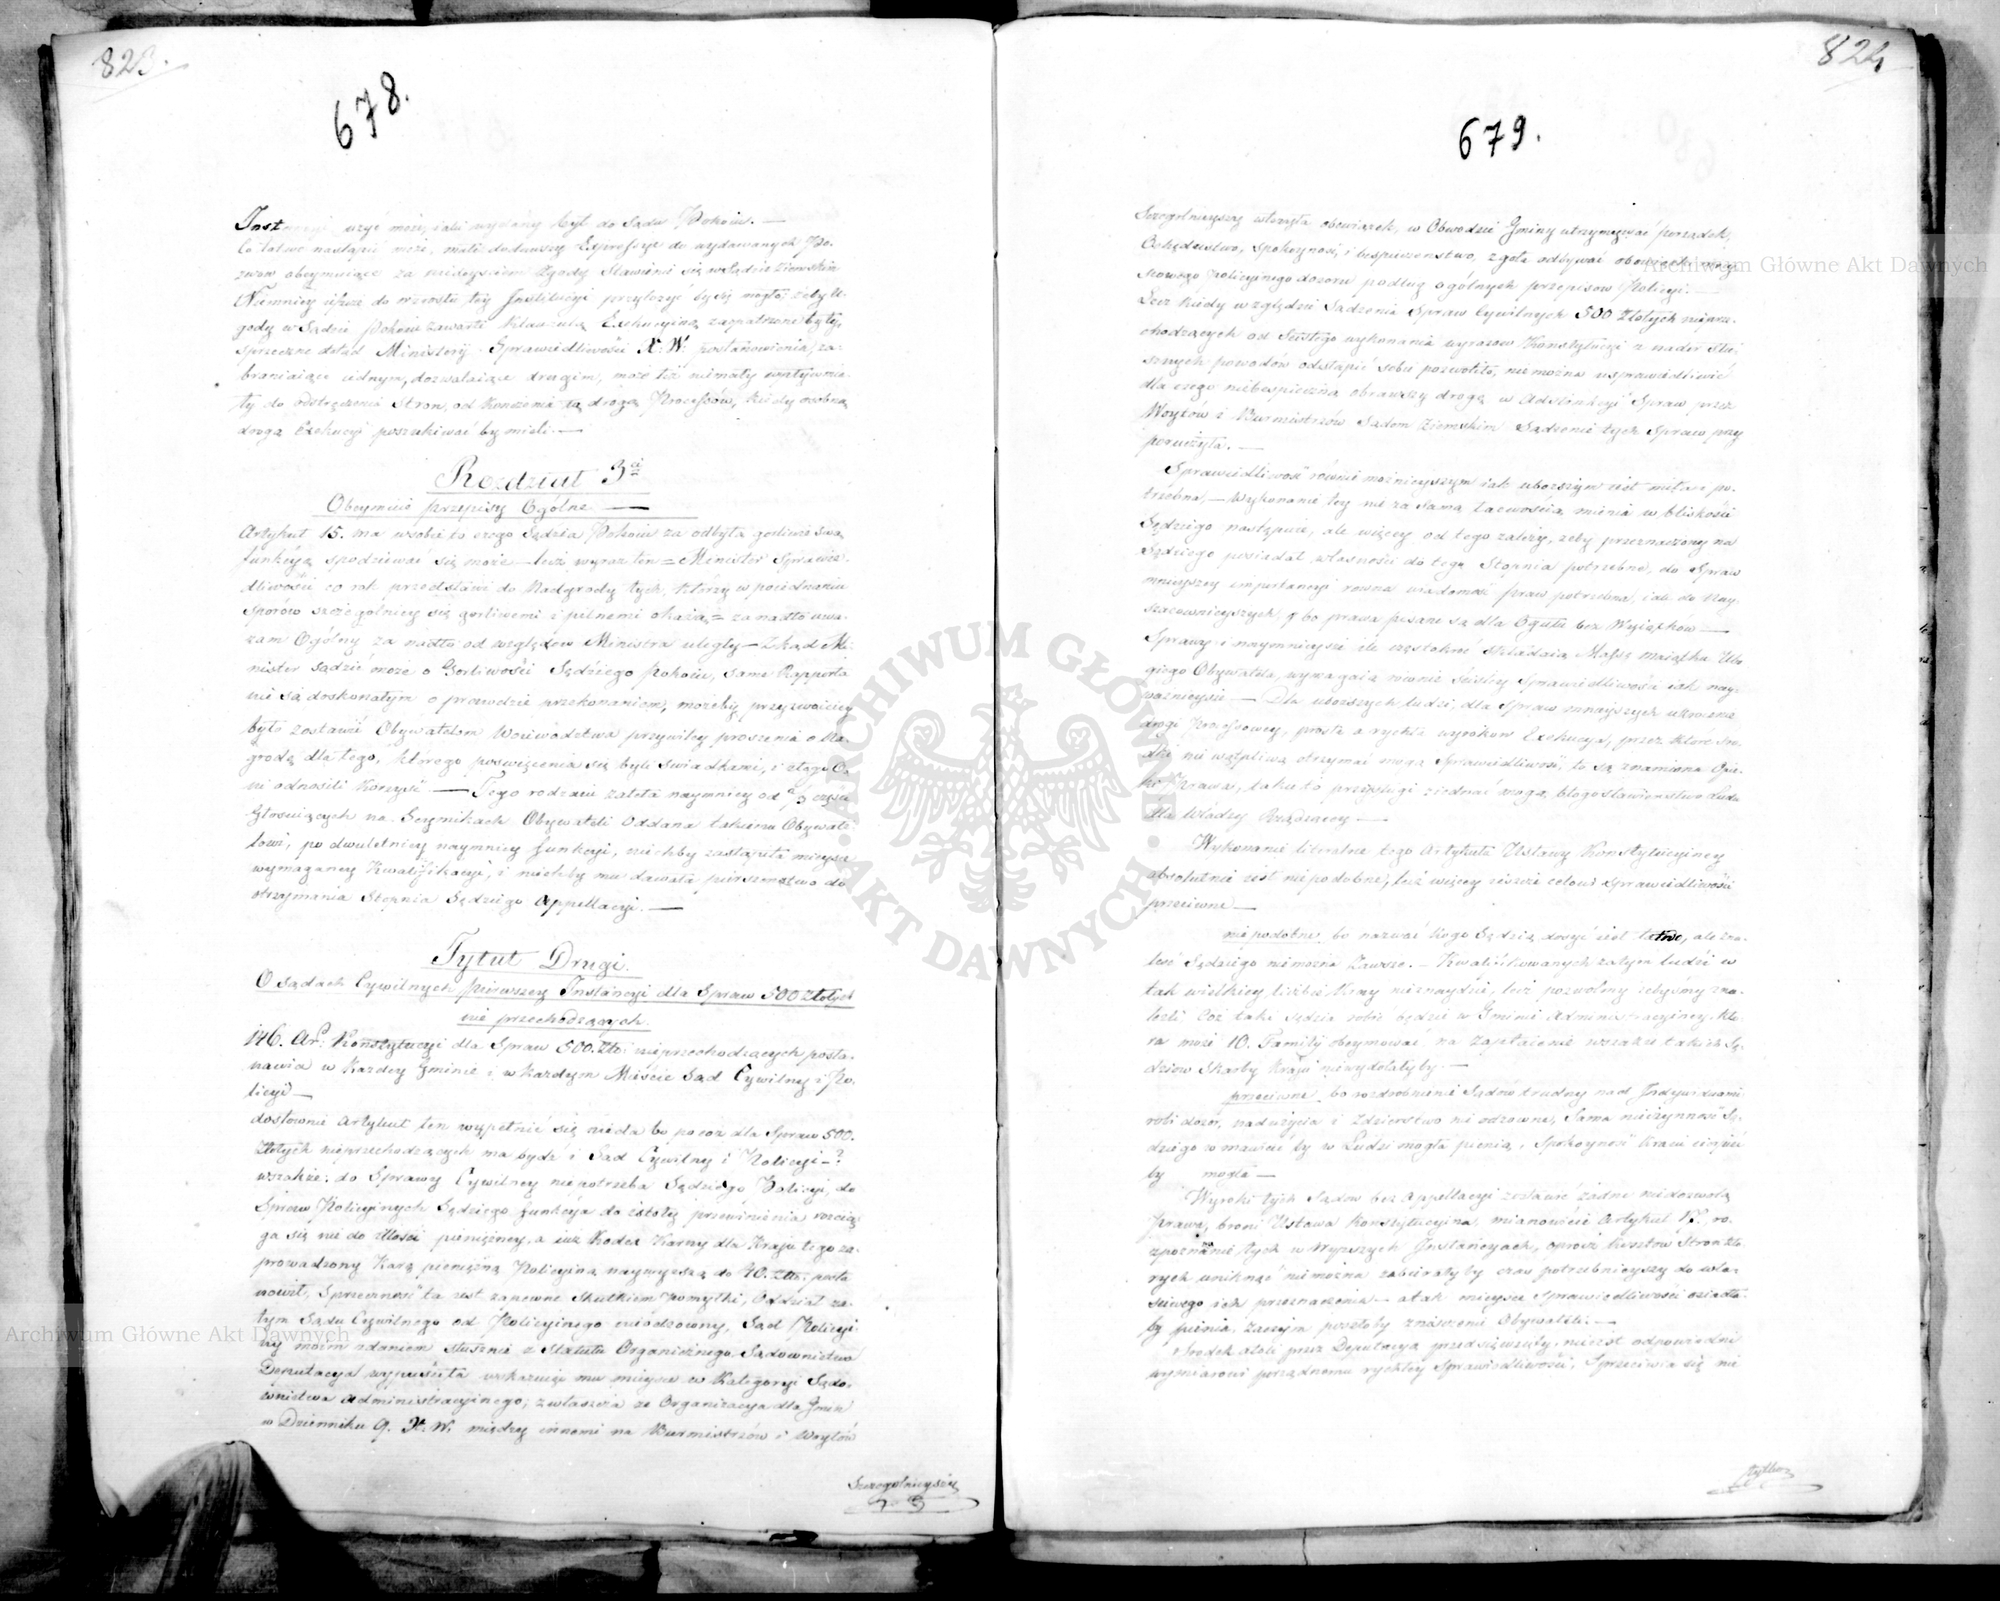 823.
678.
użyć może, iaki wydany był do Sądu Pokoiu. —
Co łatwo nastąpić może, małe dodawszy Expressye do wydawanych Po-
zwów obeymuiące za Zgodę Stawienie się w Sądzie Ziemskim
Niemniey ieszcze do wzrostu tey Instytucyi przyłożyć by się mogło: żeby U-
gody w Sądzie Pokoiu zawarte Klauzulą Exekucyiną zaopatrzone były,
sprzeczne dotąd Ministeryi Sprawiedliwości X. W. postanowienia, za-
braniaiące iednym, dozwalaiące drugim, może też niemały wpływ mia-
ły do odstręczenia Stron, od kończenia tą drogą Processów, kiedy osobną
drogą Exekucyi poszukiwać by mieli. —
Rozdział 3ci
Obeymuie przepisy Ogólne —
Artykuł 15. ma w sobie to czego Sędzia Pokoiu za odbytą gorliwie Swą
funkcyą spodziewać się może — lecz wyraz ten = Minister Sprawie-
dliwości co rok przedstawi do Nadgrody tych, którzy w poiednaniu
sporów szczególniey się gorliwemi i pilnemi okażą = za nadto uwa-
żam Ogólny za nadto od względów Ministra uległy — Zkąd Mi-
nister sądzić może o Gorliwości Sędziego Pokoiu, same Rapporta
nie są doskonałym o prawdzie przekonaniem, możeby przyzwoiciey
było zostawić Obywatelom Woiewództwa przywiley proszenia o Na-
grodę dla tego, którego poswięcenia się byli świadkami, i z tego O-
ni odnosili Korzyść. — Tego rodzaiu zaleta naymniey od części
Głosuiących na Seymikach Obywateli Oddana takiemu Obywate-
lowi, po dwuletniey naymniey funkcyi, niechby zastąpiła mieysce
wymaganey Kwalifikacyi, i niechby mu dawała pierszeństwo do
otrzymania Stopnia Sędziego Appellacyi. —
Tytuł Drugi.
O Sądach Cywilnych pierwszey Instancyi dla Spraw 500 Złotych
nie przechodzących.
146. Ar: Konstytucyi dla Spraw 500. Zło: nieprzechodzących posta-
nawia w Każdey Gminie i w każdym Mieście Sąd Cywilny i Po-
licyi —
dosłownie Artykuł ten wypełnić się nieda bo po coż dla Spraw 500.
Złotych nieprzechodzących ma bydź i Sąd Cywilny i Policyi —?
wszakże: do Sprawy Cywilney niepotrzeba Sędziego Policyi, do
Spraw Policyinych Sędziego funkcya do istoty przewinienia rozcią-
ga się nie do Ilości pieniężney, a iuż Kodex Karny dla Kraiu tego za-
prowadzony Karę pieniężną Policyiną naywyższą do 40. Zło: posta-
nowił, Sprzeczność ta iest zapewne skutkiem pomyłki, Oddział za-
tym Sądu Cywilnego od Policyinego nieodzowny, Sąd Policyi-
ny moim zdaniem słusznie z Statutu Organicznego Sądownictwa
Deputacya wypuściła wskazuiąc mu mieysce w Kategoryi Sądo-
wnictwa Administracyinego; zwłaszcza że Organizacya dla Gmin
w Dzienniku 9. X. W. między innemi na Burmistrzów i Woytów
Szczególnieyszy
824
679.
Szczególnieyszy włożyła obowiązek, w Obwodzie Gminy utrzymywać porządek,
Ochędostwo, spokoyność, i bespieczeństwo, zgoła odbywać obowiązki miey-
scowego policyinego dozoru podług ogólnych przepisów Policyi. —
Lecz kiedy względzie Sądzenia Spraw Cywilnych 500 Złotych nieprze-
chodzących od Scisłego wykonania wyrazów Konstytucyi z nader słu-
sznych powodów odstąpić sobie pozwoliła, nie można usprawiedliwić
dla czego niebespieczną obrawszy drogę w Sądzenie tych Spraw przez
Woytów i Burmistrzów Sądom Ziemskim Sądzenie tych Spraw przy
poruczyła. —
Sprawiedliwość równie możnieyszym iak uboższym iest miła i po-
trzebna, — Wykonanie tey nie za samą łatwością mienia w bliskości
Sędziego następuie, ale więcey od tego zależy, żeby przeznaczony na
Sędziego posiadał własności do tego Stopnia potrzebne, do Spraw
mnieyszey importancyi równa wiadomość praw potrzebna, iak do Nay-
szacownieyszych, bo prawa pisane są dla Ogółu bez Wyiątków —
Sprawy i naymnieysze ile częstokroć składaią Massę maiątku Ubo-
giego Obywatela, wymagaią równie ścisłey Sprawiedliwości iak nay-
ważnieysze — Dla uboższych ludzi, dla Spraw mnieyszych skrócenie
drogi Processowey, prosta a rychła wyroków Exekucya, przez które śro-
dki nie wątpliwą otrzymać mogą Sprawiedliwość, to są znamiona Opie-
ki Prawa, takie to przysługi ziednać mogą błogosławieństwo Ludu
dla Władzy Rządzącey —
Wykonanie literalne tego Artykułu Ustawy Konstytucyiney
absolutnie iest niepodobne, lecz więcey ieszcze celowi Sprawiedliwości
przeciwne —
niepodobne bo nazwać kogo Sędzią dosyć iest łatwo, ale zna-
leść Sędziego niemożna Zawsze. — Kwalifikowanych zatym ludzi w
tak wielkiey liczbie Kray nieznaydzie, lecz pozwolmy żebyśmy zna-
leźli Coż taki Sędzia robić będzie w Gminie Administracyiney, któ-
ra może 10. Familij obeymować, na zapłacenie wszakże takich Sę-
dziów Skarby Kraiu niewydołałyby. —
przeciwne bo rozdrobnienie Sądów trudny nad Indywiduami
robi dozór, nadużycia i Zdzierstwo nieodzowne, Sama nieczynność Sę-
dziego w mawiać by w Ludzi mogła pienią, Spokoyność kraiu cierpieć
by mogła —
Wyroki tych Sądów bez Appellacyi zostawić żadne niedozwala
Prawo, broni Ustawa Konstytucyina, mianowicie Artykuł ro-
zpoznanie tych w Wyższych Instancyach, oprócz kosztów Stron któ-
rych uniknąć niemożna zabierałyby czas potrzebnieyszy do wła-
ściwego ich przeznaczenia — a tak mieysce Sprawiedliwości osiadła-
by pienia, zaczym poszłoby zniszczenie Obywateli. —
Srodek atoli przez Deputacyą przedsięwzięty, nieiest odpowiedni
wymiarowi porządnemu rychłey Sprawiedliwości, Sprzeciwia się nie
tylko
ARCHIWUM GŁÓWNE AKT DAWNYCH
Archiwum Główne Akt Dawnych
Archiwum Główne Akt Dawnych